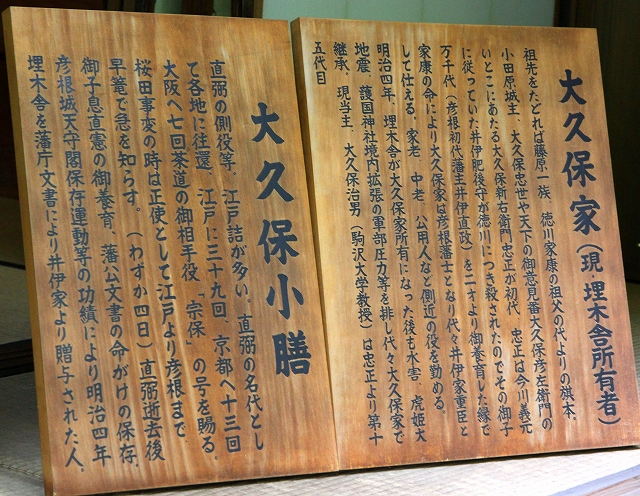 大久保家（現・埋木舎所有者）
祖先をたどれば藤原一族、徳川家康の祖父の代よりの旗本、
小田原城主、大久保忠世や天下の御意見番大久保彦左衛門の
いとこにあたる大久保新右衛門忠正が初代、忠正は今川義元
に従っていた井伊肥後守が徳川につき殺されたのでその御子
万千代（彦根初代藩主井伊直政）を二才より御養育した縁で
家康の命により大久保家は彦根藩士となり代々井伊家重臣と
して仕える。家老、中老、公用人など側近の役を勤める。
明治四年、埋木舎が大久保家所有になった後も水害、虎姫大
地震、護国神社境内拡張の軍部圧力等を排し代々大久保家で
継承、現当主、大久保治男（駒沢大学教授）は忠正より第十
五代目
大久保小膳
直弼の側役等、江戸詰が多い。直弼の名代とし
て各地に往還、江戸に三十九回、京都へ十三回
大阪へ七回茶道の御相手役、「宗保」の号を賜る。
桜田事変の時は正使として江戸より彦根まで、
早篭で急を知らす。（わずか四日）直弼逝去後
御子息直憲の御養育、藩公文書の命がけの保存、
彦根城天守閣保存運動等の功績により明治四年
埋木舎を藩庁文書により井伊家より贈与された人。